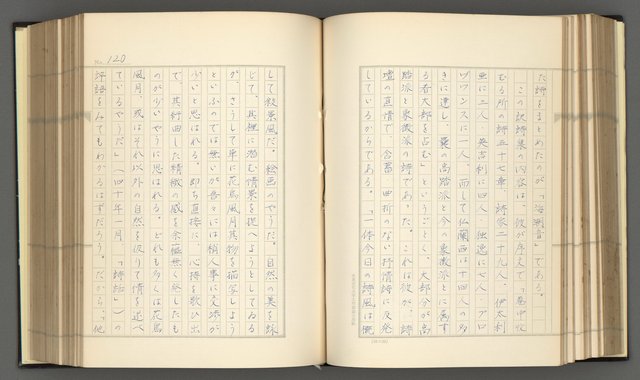 た詩をまとめたのが「海潮音」である。
この訳詩集の内容は、彼が序文で「巻中収
むる所の詩五十七章、詩家二十九人、伊太利
亜に三人、英吉利に四人、独逸に七人、プロ
ヴァンスに一人、而して仏蘭西は十四人の多
きに達し、曩の高踏派と今の象徴派とに属す
る者其大部を占む」というごとく、大部分が高
踏派と象徴派の詩であった。これは彼が、詩
壇の直情で、含蓄曲折のない抒情詩に反発
しているからである。「一体今日の詩風は概
No. 120
して叙景風だ。絵画のやうだ。自然の美を詠
じて、其裡に潜む情景を捉へようとしてゐる
が、さうして単に花鳥風月其物を描写しよう
といふのでは無いが吾々には稍人事に交渉が
少いと思はれる。即ち直接に、心持を歌ひ出
で、其行曲した精緻の感を余蘊無く発したも
のが少いやうに思はれる。どれも多くは花鳥
風月、或はそれ以外の自然を仮りて情を述べ
ているやうだ」(四十年一月、「詩話」)の
評語をみてもわかるはずだろう。だから、「他